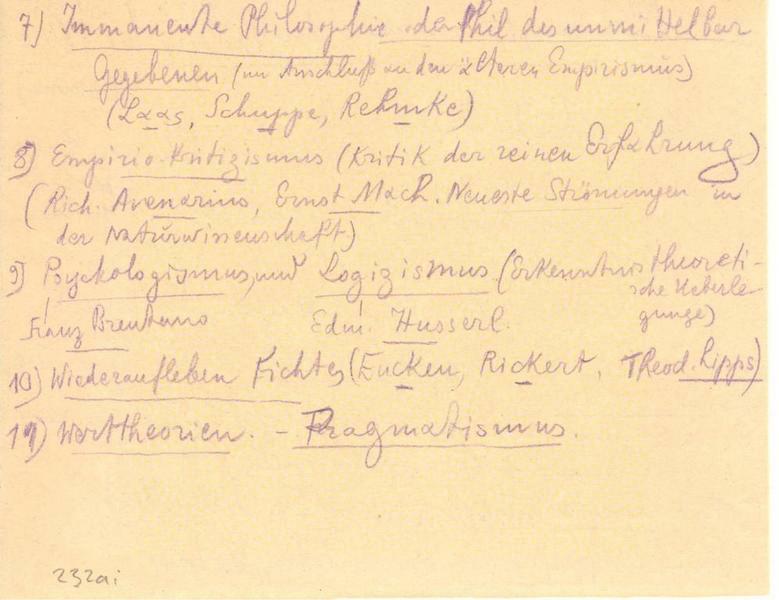 7) Immanente Philosophie oder Phil des unmittelbar
Gegebenen (im Anschluß an den älteren Empirismus)
(Laas, Schuppe, Rehmke)
8) Empirio-Kritizismus (Kritik der reinen Erfahrung)
(Rich. Avenarius, Ernst Mach. Neueste Strömungen in
der Naturwissenschaft)
9) Psychologismus, und Logizismus (Erkenntnistheoreti-
sche Ueberle-
gunge)
Franz Brentano Edm. Husserl.
10) Wiederaufleben Fichtes (Eucken, Rickert, Theod. Lipps)
11) Werttheorien. - Pragmatismus.
232ai